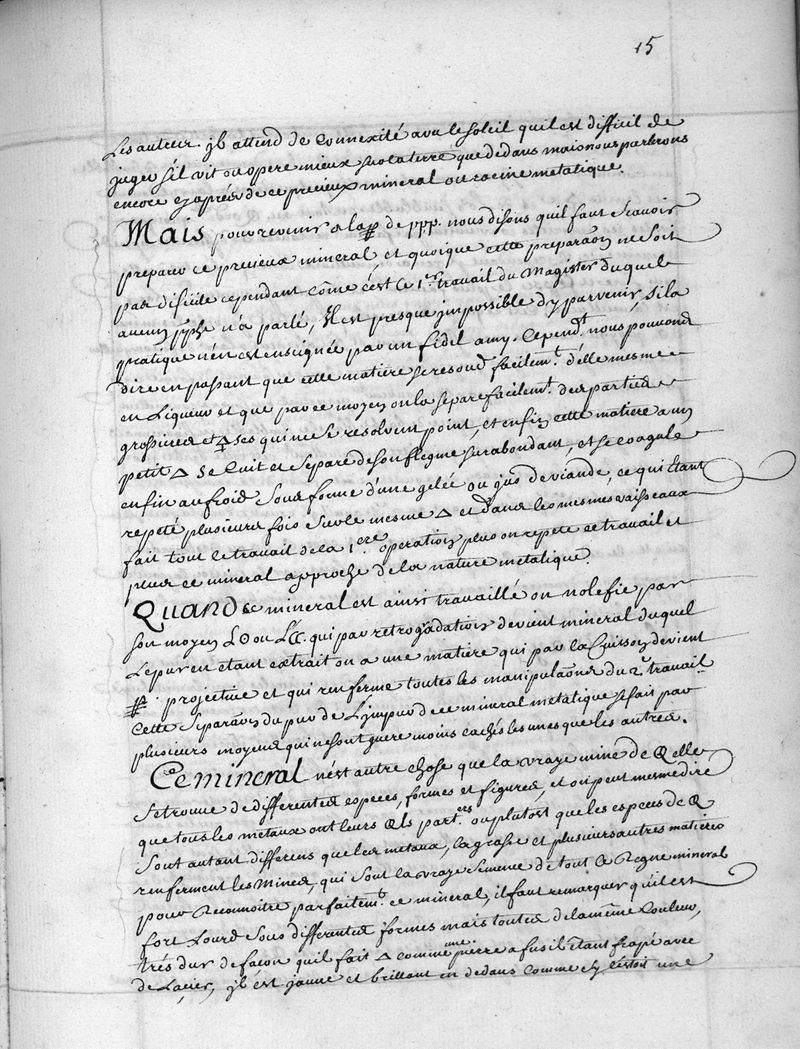 15
Les auteur. jl attend de Connexité avec le soleil quil est difficil de
juger s'il vit ou opere mieux sur la terre que dedans mais nous parlerons
encore cy aprés de ce precieux mineral ou racine metalique.
Mais pour revenir a la de ppp. nous disons quil faut scavoir
preparer ce precieux mineral, et quoique cette preparaõn ne soit
pas dificile cependant côme c'est le 1.er travail du Magister duquel
aucun pphe n'a parlé, Il est presque jmpossible d'y parvenir, si la
pratique n'en est enseignée par un fidel amy. Cepend.t nous pouvons
dire en passant que cette matiére se resoud facilem.t d'elle mesme
en Liqueur et que par ce moyen on la separe facilem.t des parties
grossieres et ses qui ne se resolvent point, et enfin cette matiére a un
petit △ se Cuit et separe de son flegme surabondant, et se coagule
enfin au froid sous forme d'une gelée ou jus de viande, ce qui êtant
repeté plusieurs fois sur le mesme △ et dans les mesmes vaisseaux
fait tout le travail de la 1.ere operation plus on repete ce travail et
plus ce mineral approche de la nature metalique.
Quand ce mineral est ainsi travaillé on
son moyen ou qui par retrogradation devient mineral duquel
Le pur en etant extrait on a une matiére qui par la Cuisson devient
projective et qui renferme toutes les manipulaõns du 2.e travail
Cette Separaõn du pur de L'jmpur de ce mineral metalique se fait par
plusieurs moyens qui ne sont guere moins cachés les unes que les autres.
Ce mineral n'est autre chose que la vraye mine de elle
se trouve de differentes especes, formes et figures, et on peut mesme dire
que tous les metaux ont leurs part.ers ou plutost que les especes de
sont autant differens que les metaux, la grasse et plusieurs autres matiéres
renferment les Mines, qui sont la vraye semence de tout le Regne mineral
pour Reconnoitre parfaitem.t ce mineral, il faut remarquer qu'il est
fort Lourd sous differentes formes mais toutes de la même Couleur,
trés dur de façon quil fait △ comme une pierre a fusil êtant frapé avec
de L'acier, jl est jaune et brillant en dedans comme sy c'estoit une